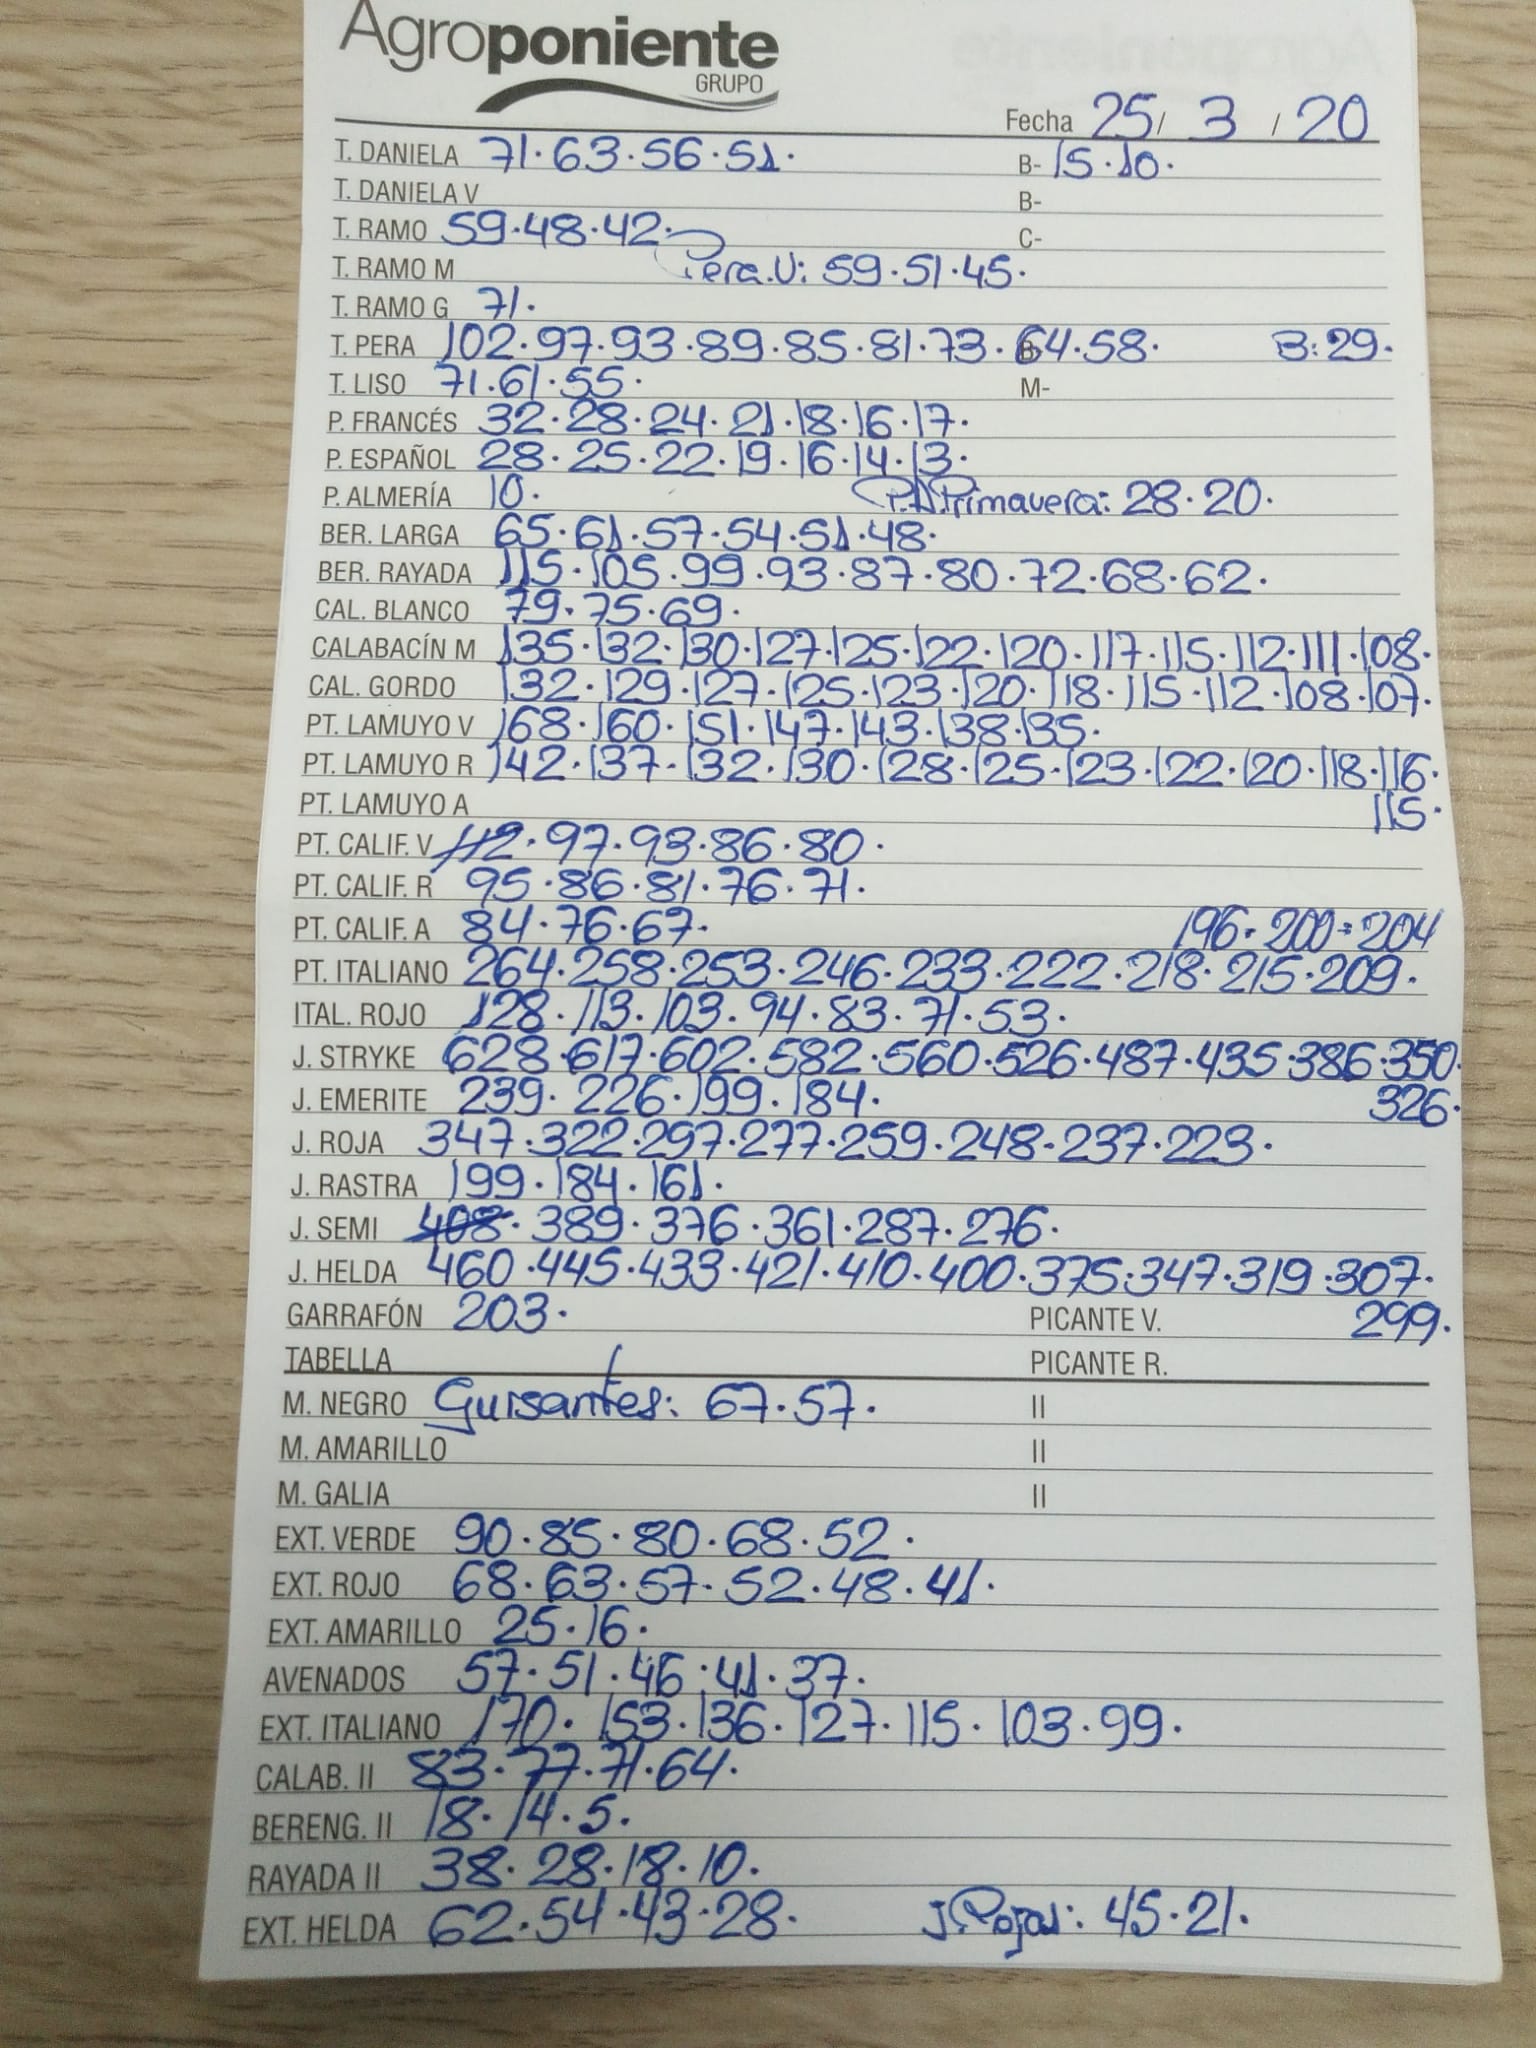 Agroponiente
GRUPO
Fecha 25/ 3 / 20
T. DANIELA 71·63·56·51· B- 15·10·
T. DANIELA V B-
T. RAMO 59·48·42· C-
T. RAMO M Pera.V: 59·51·45·
T. RAMO G 71·
T. PERA 102·97·93·89·85·81·73·64·58· B:29·
T. LISO 71·61·55· M-
P. FRANCÉS 32·28·24·21·18·16·17·
P. ESPAÑOL 28·25·22·19·16·14·13·
P. ALMERÍA 10· P.A.Primavera: 28·20·
BER. LARGA 65·61·57·54·51·48·
BER. RAYADA 115·105·99·93·87·80·72·68·62·
CAL. BLANCO 79·75·69·
CALABACÍN M 135·132·130·127·125·122·120·117·115·112·111·108·
CAL. GORDO 132·129·127·125·123·120·118·115·112·108·107·
PT. LAMUYO V 168·160·151·147·143·138·135·
PT. LAMUYO R 142·137·132·130·128·125·123·122·120·118·116·
PT. LAMUYO A 115·
PT. CALIF. V 112·97·93·86·80·
PT. CALIF. R 95·86·81·76·71·
PT. CALIF. A 84·76·67· 196·200·204
PT. ITALIANO 264·258·253·246·233·222·218·215·209·
ITAL. ROJO 128·113·103·94·83·71·53·
J. STRYKE 628·617·602·582·560·526·487·435·386·350·
J. EMERITE 239·226·199·184· 326·
J. ROJA 347·322·297·277·259·248·237·223·
J. RASTRA 199·184·161·
J. SEMI 408·389·376·361·287·276·
J. HELDA 460·445·433·421·410·400·375·347·319·307·
GARRAFÓN 203· PICANTE V. 299·
TABELLA PICANTE R.
M. NEGRO Guisantes: 67·57· II
M. AMARILLO II
M. GALIA II
EXT. VERDE 90·85·80·68·52·
EXT. ROJO 68·63·57·52·48·41·
EXT. AMARILLO 25·16·
AVENADOS 57·51·46·41·37·
EXT. ITALIANO 170·153·136·127·115·103·99·
CALAB. II 83·77·71·64·
BERENG. II 18·14·5·
RAYADA II 38·28·18·10·
EXT. HELDA 62·54·43·28· J.Rojas: 45·21·